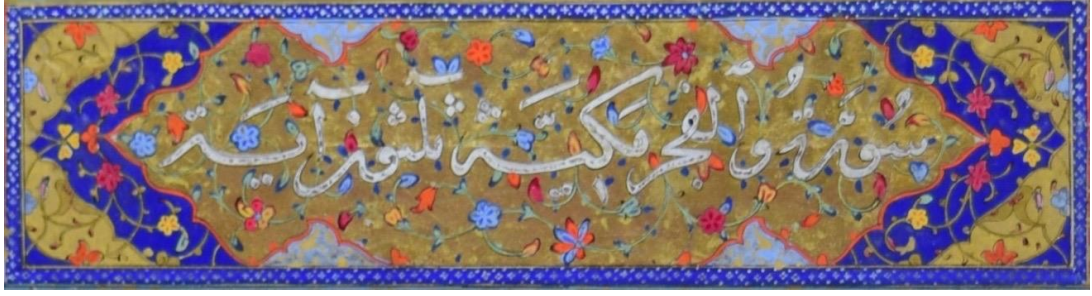 سورة والفجر مكية ثلثون آية